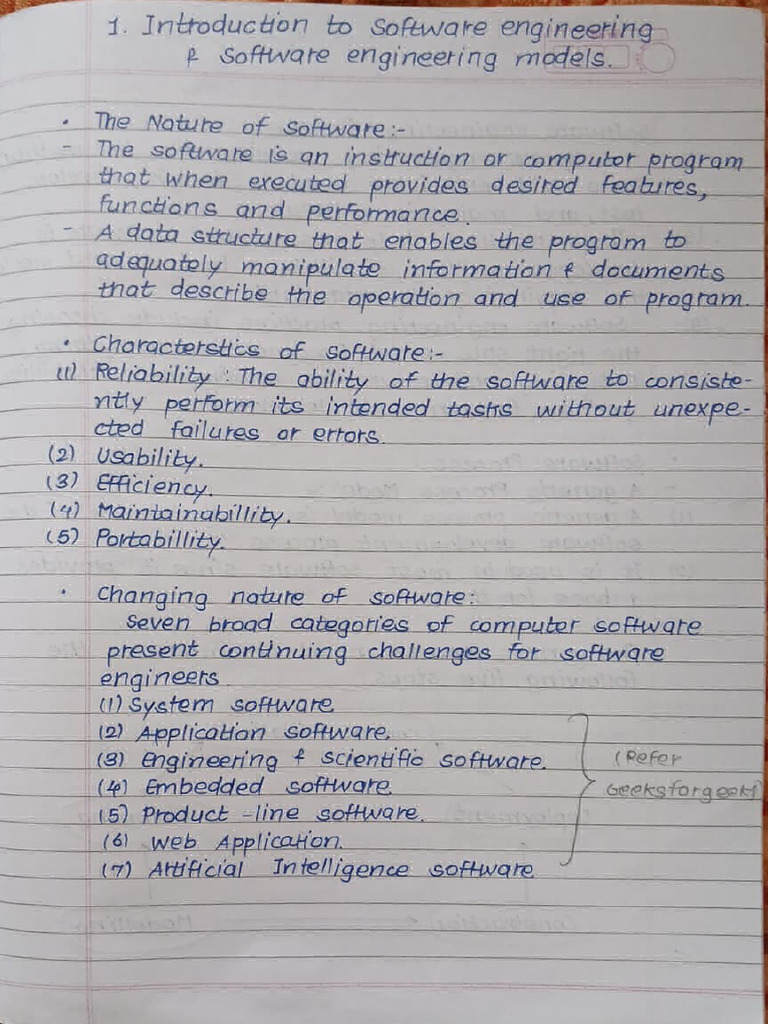 1. Introduction to software engineering
& software engineering models.
• The Nature of software:-
- The software is an instruction or computor program
that when executed provides desired features,
functions and performance.
- A data structure that enables the program to
adequately manipulate information & documents
that describe the operation and use of program.
• Characterstics of software:-
(1) Reliability : The ability of the software to consiste-
ntly perform its intended tasks without unexpe-
cted failures or errors.
(2) Usability.
(3) Efficiency.
(4) Maintainabillity.
(5) Portabillity.
• Changing nature of software:
Seven broad categories of computer software
present continuing challenges for software
engineers.
(1) System software.
(2) Application software.
(3) Engineering & scientific software.
(Refer
(4) Embedded software.
Geeksforgeeks)
(5) Product -line software.
(6) Web Application.
(7) Artificial Intelligence software